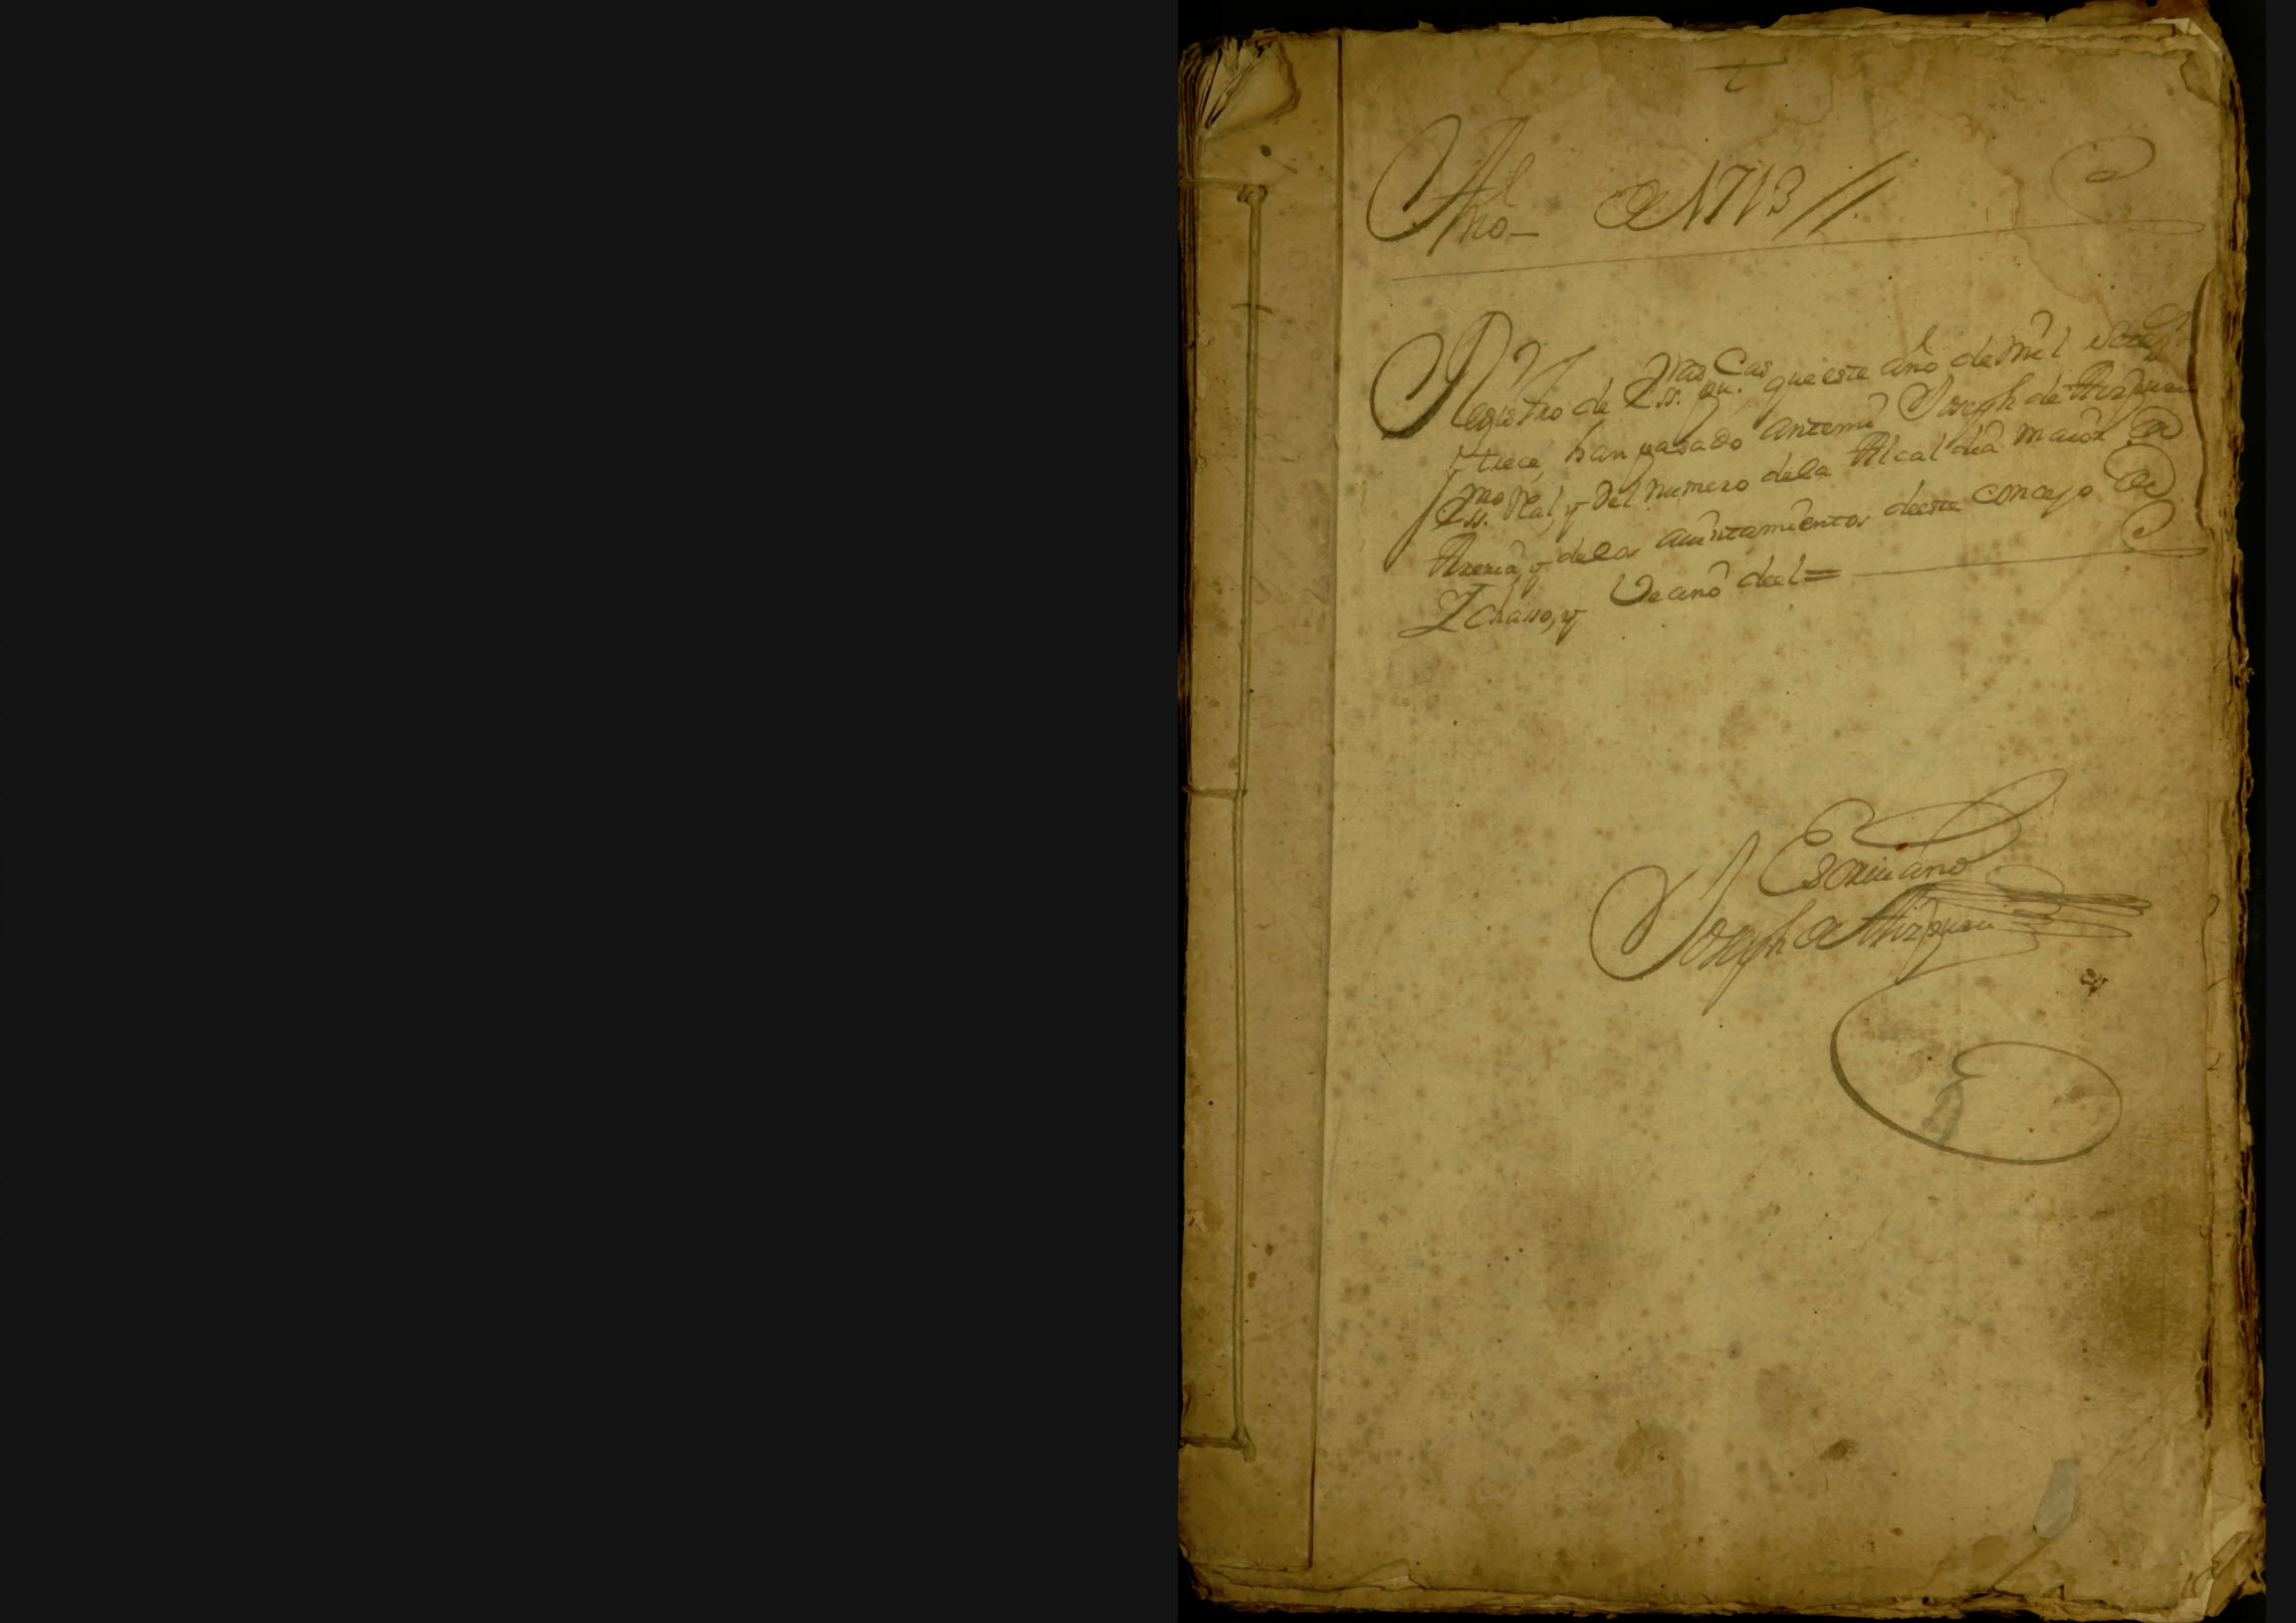 Año de 1713 //
Registro de Essras pucas que este año de mil setecs
y trece, han pasado antemi Joseph de Aizpuru
essno Real, y del numero dela Alcaldia maior de
Areria, y delos aiuntamientos deeste concejo de
Ichasso, y Vecino deel =
Escriuano
Joseph de Aizpuru